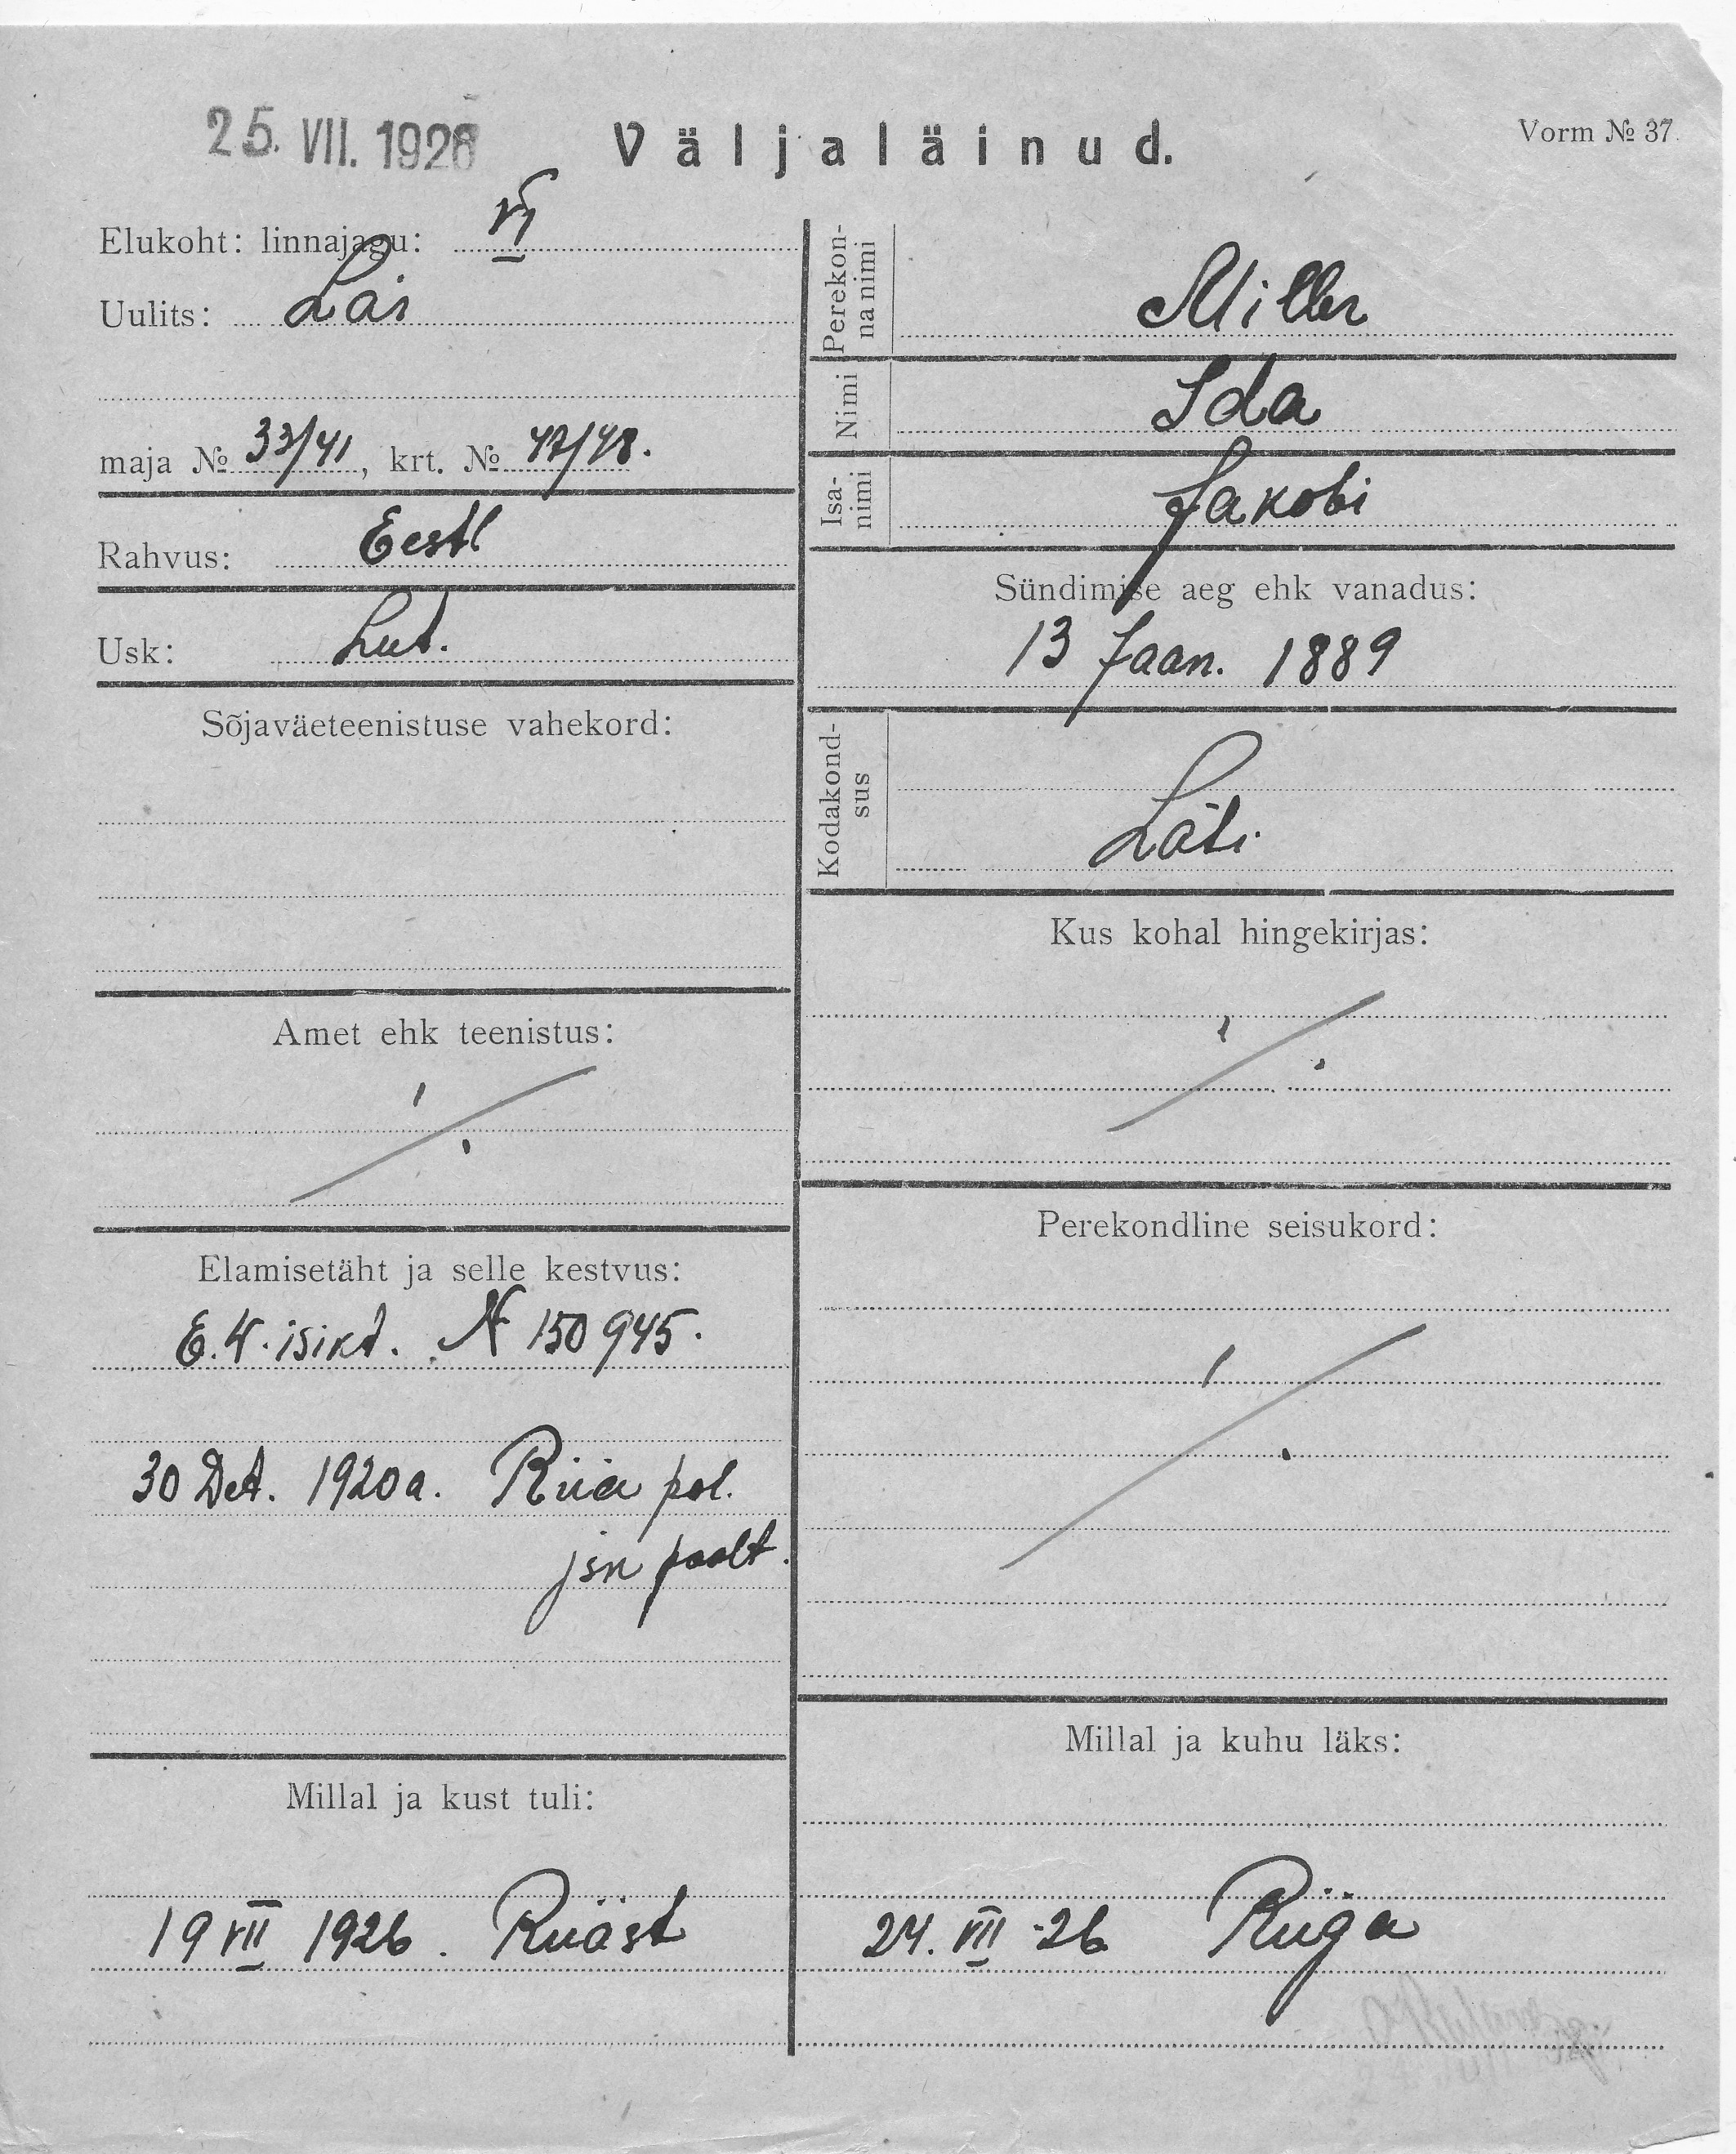 25. VII. 1926
Väljaläinud.
Vorm № 37
Elukoht: linnajagu: VI
Uulits: Lai
maja № 33/41, krt. № 47/48.
Rahvus: Eestl
Usk: Lut.
Sõjaväeteenistuse vahekord:
Amet ehk teenistus:
Elamisetäht ja selle kestvus:
E.V. isikt. N 150945.
30 Det. 1920 a. Riia pol.
jsk poolt.
Millal ja kust tuli:
19 VII 1926. Riiast
Perekon-
na nimi
Miller
Nimi
Ida
Isa-
nimi
Jakobi
Sündimise aeg ehk vanadus:
13 Jaan. 1889
Kodakond-
sus
Läti
Kus kohal hingekirjas:
Perekondline seisukord:
Millal ja kuhu läks:
24. VII 26 Riiga